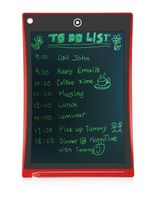 TO DO LIST
9:00 Call John
9:30 Reply Emails
10:00 Coffee time
10:30 Meeting
12:00 Lunch
14:00 Seminar
17:30 Pick up Tammy
18:00 Dinner @ HappyTime
with Tammy